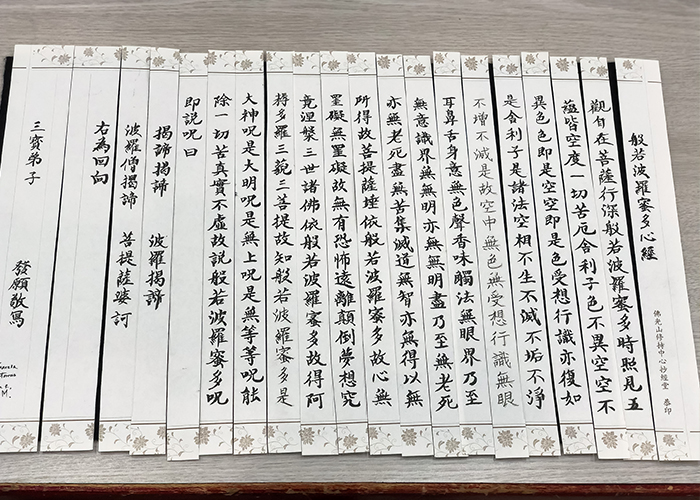 般若波羅蜜多心經
佛光山修持中心抄經堂 恭印
觀自在菩薩行深般若波羅蜜多時照見五
蘊皆空度一切苦厄舍利子色不異空空不
異色色即是空空即是色受想行識亦復如
是舍利子是諸法空相不生不滅不垢不淨
不增不減是故空中無色無受想行識無眼
耳鼻舌身意無色聲香味觸法無眼界乃至
無意識界無無明亦無無明盡乃至無老死
亦無老死盡無苦集滅道無智亦無得以無
所得故菩提薩埵依般若波羅蜜多故心無
罣礙無罣礙故無有恐怖遠離顛倒夢想究
竟涅槃三世諸佛依般若波羅蜜多故得阿
耨多羅三藐三菩提故知般若波羅蜜多是
大神呪是大明呪是無上呪是無等等呪能
除一切苦真實不虛故說般若波羅蜜多呪
即說呪曰
揭諦揭諦 波羅揭諦
波羅僧揭諦 菩提薩婆訶
右為回向
三寶弟子 發願敬寫